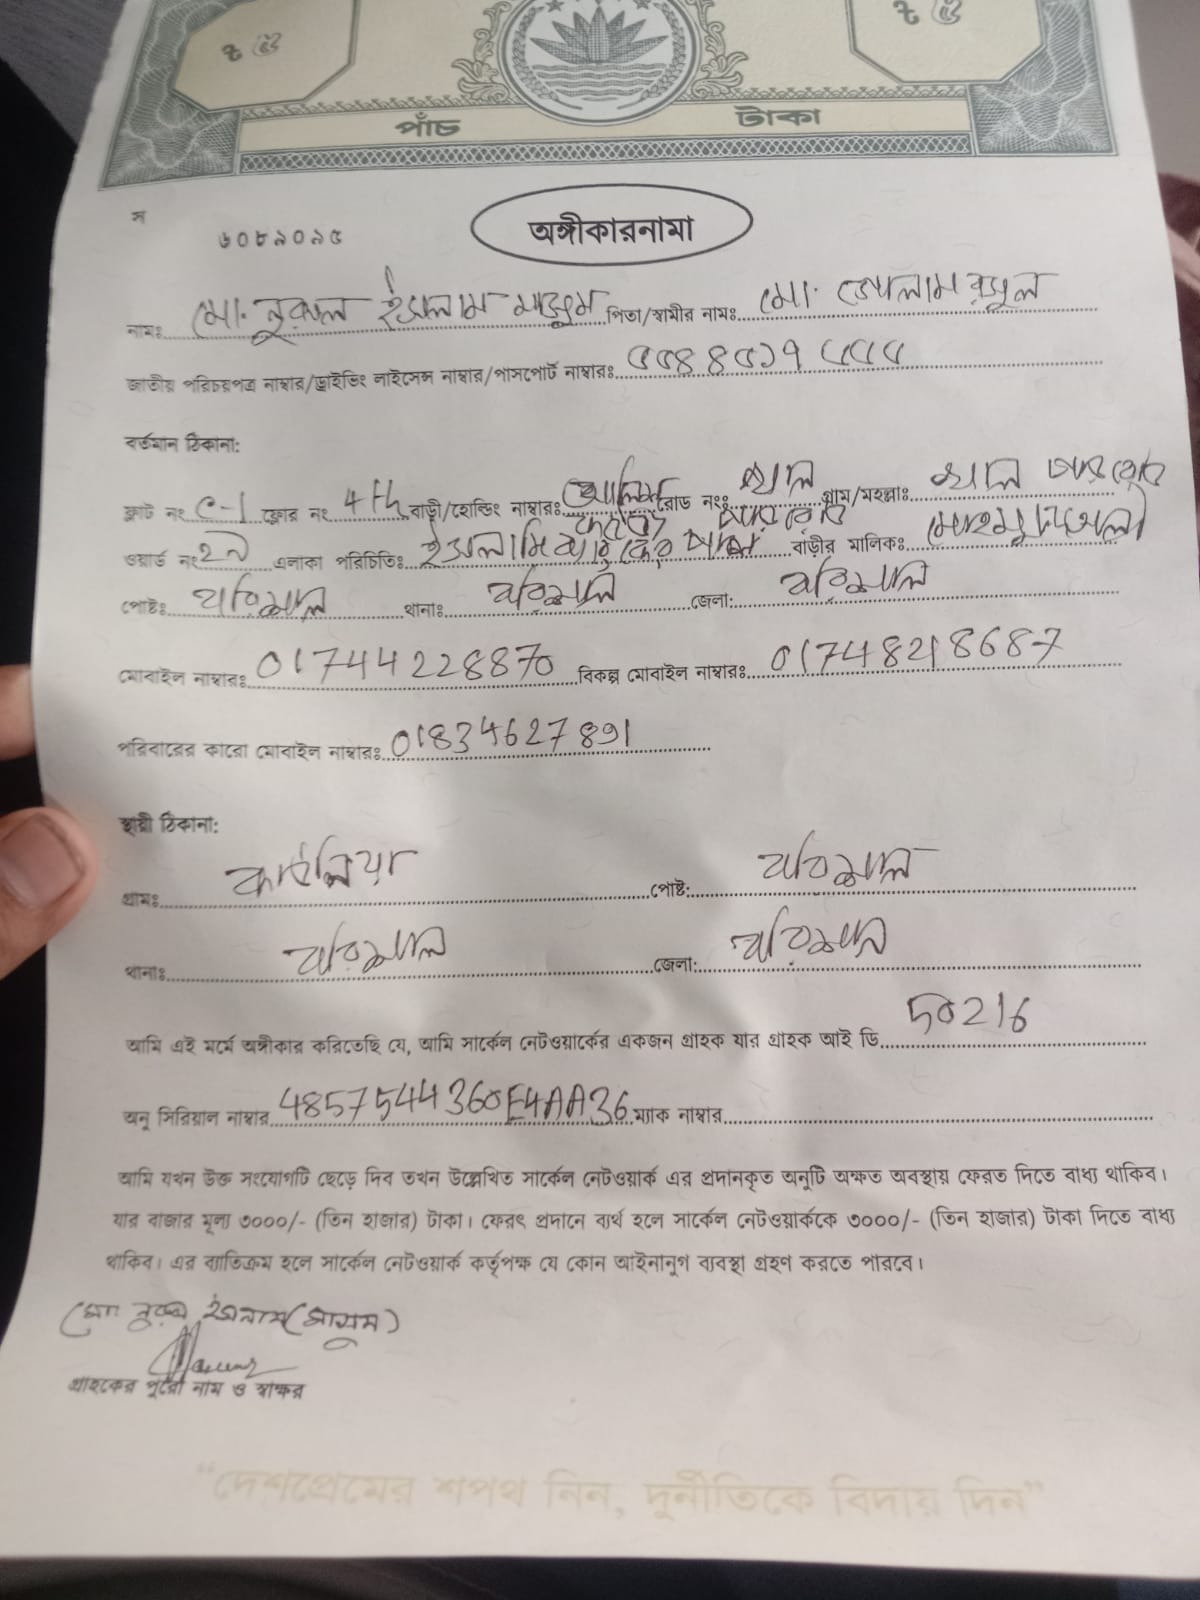 ট ৫ ট ৫
পাঁচ টাকা
স ৬০৮৯০৯৫
অঙ্গীকারনামা
নামঃ মো. নুরুল ইসলাম মাসুম পিতা/স্বামীর নামঃ মো. গোলাম রসুল
জাতীয় পরিচয়পত্র নাম্বার/ড্রাইভিং লাইসেন্স নাম্বার/পাসপোর্ট নাম্বারঃ
বর্তমান ঠিকানা:
ফ্লাট নং C-1 ফ্লোর নং 4th বাড়ী/হোল্ডিং নাম্বারঃ রোড নংঃ গ্রাম/মহল্লাঃ
ওয়ার্ড নং এলাকা পরিচিতিঃ ইসলামি ব্যাংকের পাশে বাড়ীর মালিকঃ
পোষ্টঃ বরিশাল থানাঃ বরিশাল জেলা: বরিশাল
মোবাইল নাম্বারঃ 01744228870 বিকল্প মোবাইল নাম্বারঃ 01748218687
পরিবারের কারো মোবাইল নাম্বারঃ 01834627891
স্থায়ী ঠিকানা:
গ্রামঃ কাউনিয়া পোষ্ট: বরিশাল
থানাঃ বরিশাল জেলা: বরিশাল
আমি এই মর্মে অঙ্গীকার করিতেছি যে, আমি সার্কেল নেটওয়ার্কের একজন গ্রাহক যার গ্রাহক আই ডি 50216
অনু সিরিয়াল নাম্বার 4857544360E4AA36 ম্যাক নাম্বার
আমি যখন উক্ত সংযোগটি ছেড়ে দিব তখন উল্লেখিত সার্কেল নেটওয়ার্ক এর প্রদানকৃত অনুটি অক্ষত অবস্থায় ফেরত দিতে বাধ্য থাকিব।
যার বাজার মূল্য ৩০০০/- (তিন হাজার) টাকা। ফেরৎ প্রদানে ব্যর্থ হলে সার্কেল নেটওয়ার্ককে ৩০০০/- (তিন হাজার) টাকা দিতে বাধ্য
থাকিব। এর ব্যতিক্রম হলে সার্কেল নেটওয়ার্ক কর্তৃপক্ষ যে কোন আইনানুগ ব্যবস্থা গ্রহণ করতে পারবে।
মো: নুরুল ইসলাম (মাসুম)
গ্রাহকের পুরো নাম ও স্বাক্ষর
"দেশপ্রেমের শপথ নিন, দুর্নীতিকে বিদায় দিন"